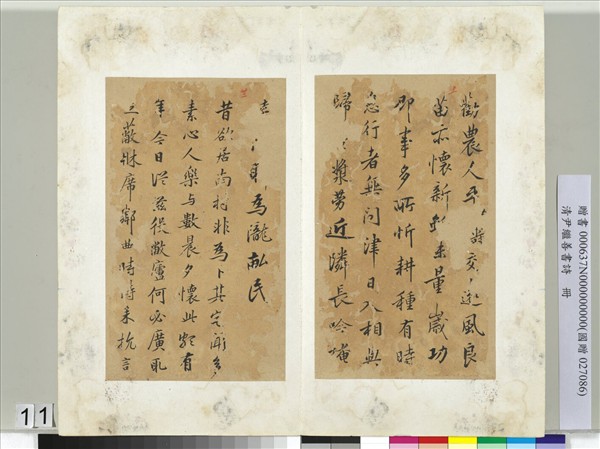 勸農人平疇交遠風良
苗亦懷新未量歲功
即事多所忻耕種有時
息行者無問津日入相與
歸漿勞近隣長吟掩
為瀧畝民
昔欲居南村非為卜其宅聞多
素心人樂與數晨夕懷此頗有
年今日從茲役敝廬何必廣取
蔽牀席鄰曲時時來抗言
贈書 000637N000000000(國贈 027086)
清尹繼善書詩 冊
11